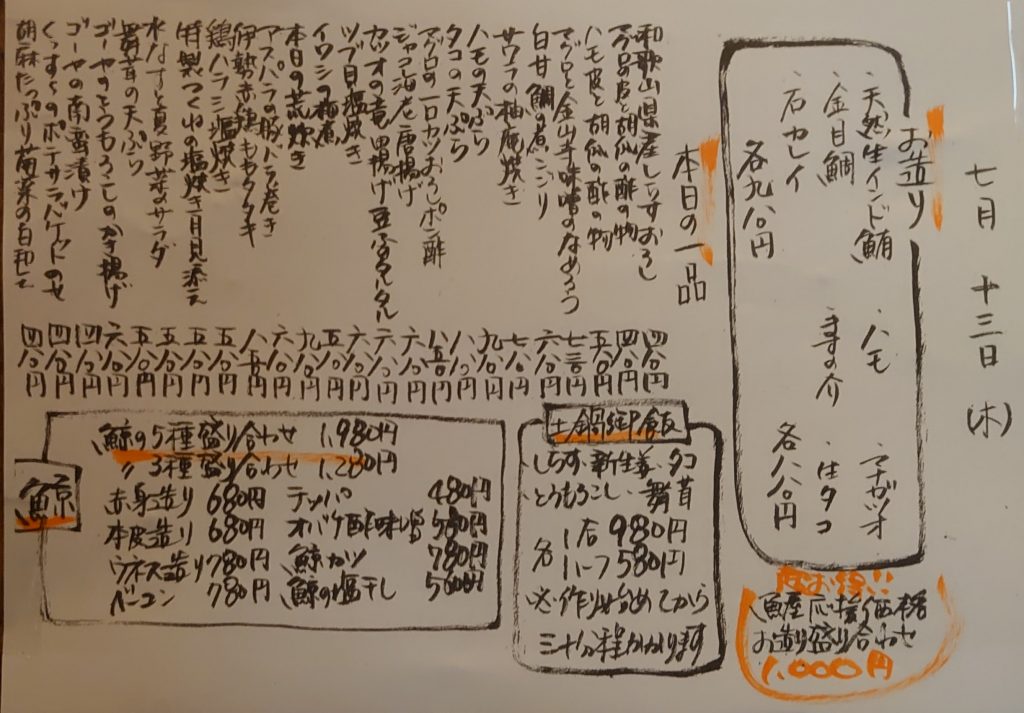 七月 十三日 (木)
お造り
・天然生インド鮪 ・ハモ マナガツオ
・金目鯛 ・寿の介 ・生タコ
・石カレイ 各八八〇円
各九八〇円
超お得!!
魚屋応援価格
お造り盛り合わせ
1,000円
本日の一品
和歌山県産しらすおろし 四八〇円
マグロ皮と胡瓜の酢の物 四八〇円
ハモ皮と胡瓜の酢の物 五八〇円
マグロと金山寺味噌のなめろう 七三〇円
白甘鯛の煮こごり 六八〇円
サワラの柚庵焼き 七八〇円
ハモの天ぷら 九八〇円
タコの天ぷら 八八〇円
マグロの一口カツおろしポン酢 八五〇円
ジャコ海老唐揚げ 六八〇円
カツオの竜田揚げ豆腐タルタル 六八〇円
ツブ貝塩焼き 六八〇円
イワシの梅煮 五八〇円
本日の荒炊き 九八〇円
アスパラの豚バラ巻き 六八〇円
伊勢赤鶏ももタタキ 八五〇円
鶏ハラミ塩焼き 五八〇円
特製つくねの塩焼き月見添え 五八〇円
水なすと夏野菜のサラダ 五八〇円
舞茸の天ぷら 五八〇円
ゴーヤのとうもろこしのかき揚げ 六八〇円
ゴーヤの南蛮漬け 四八〇円
くんすらのポテサラバケットのせ 四八〇円
胡麻たっぷり菊菜のお和して 四八〇円
土鍋御飯
しらす・新生姜・タコ
とうもろこし・舞茸
各 1合 980円
ハーフ 580円
※作り始めてから
三十分程かかります
鯨
鯨の5種盛り合わせ 1,980円
〃 3種盛り合わせ 1,280円
赤身造り 680円 テッパ 480円
本皮造り 680円 オバケ酢味噌 580円
ウネス造り 780円 鯨カツ 780円
ベーコン 780円 鯨の塩干し 500円